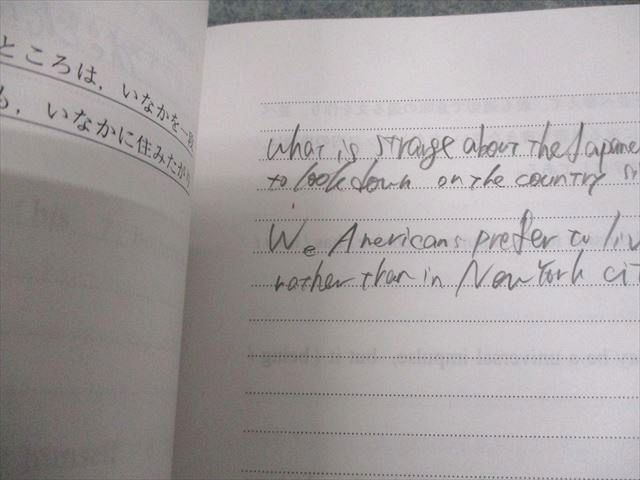 ところは，いなかを一段
も，いなかに住みたがり
What is strange about the Japane
to look down on the country
We Americans prefer to liv
rather than in New York cit